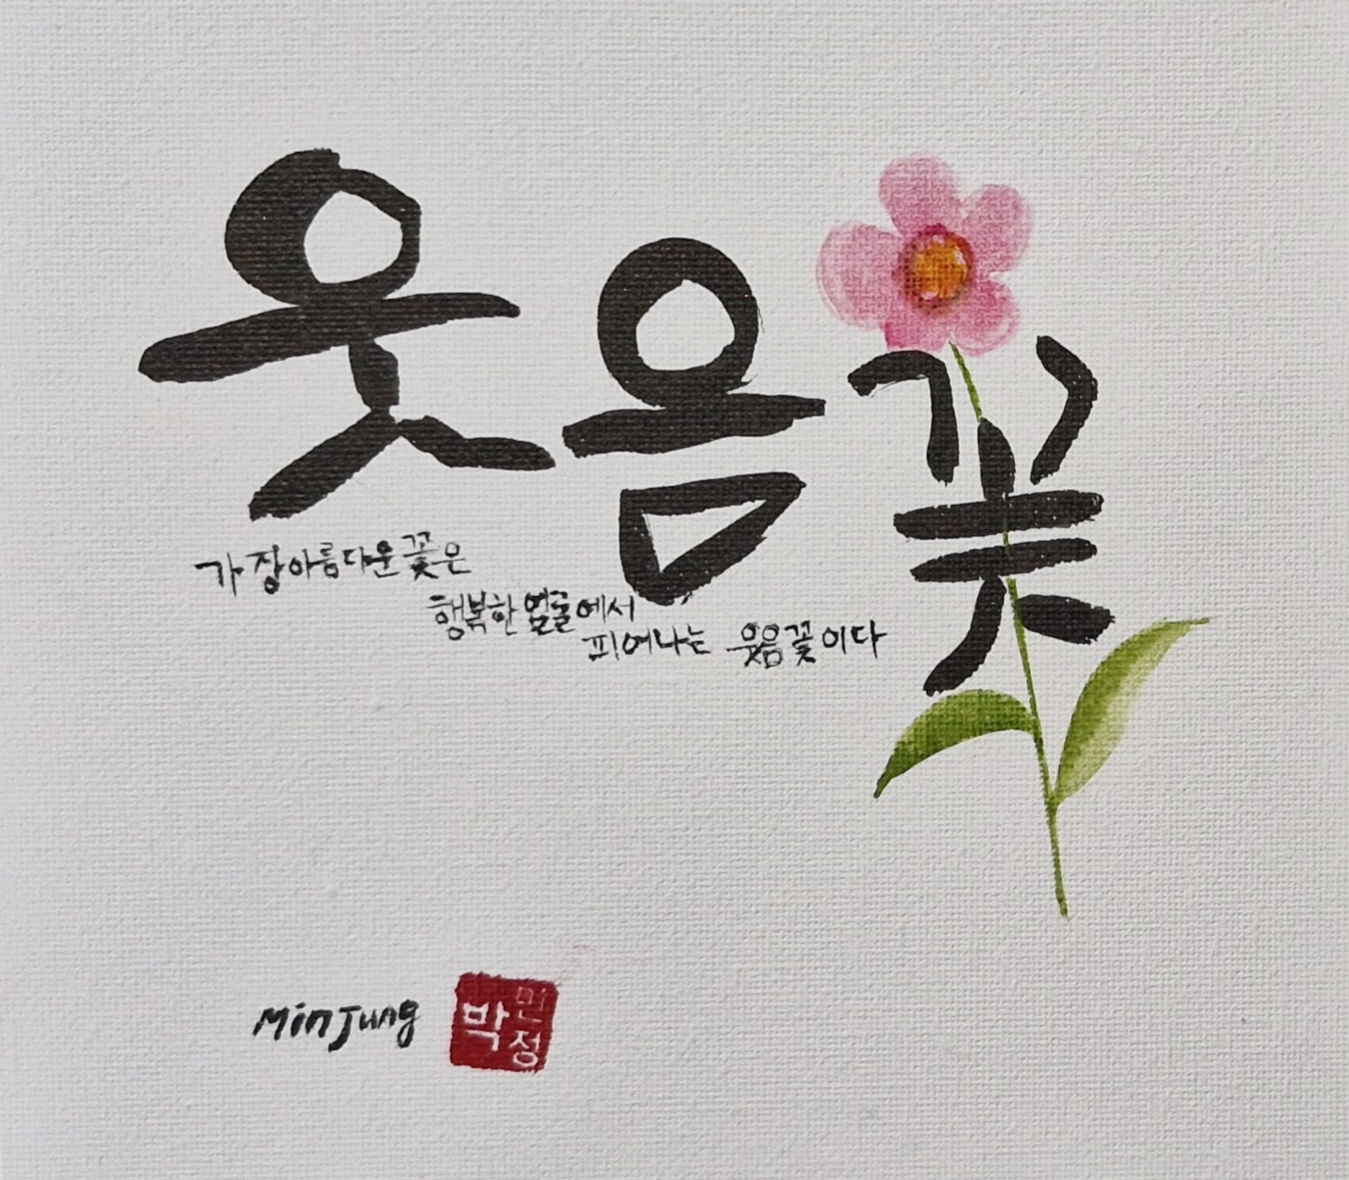 웃음꽃
가장 아름다운 꽃은
행복한 얼굴에서
피어나는 웃음꽃이다
Minjung
박민정